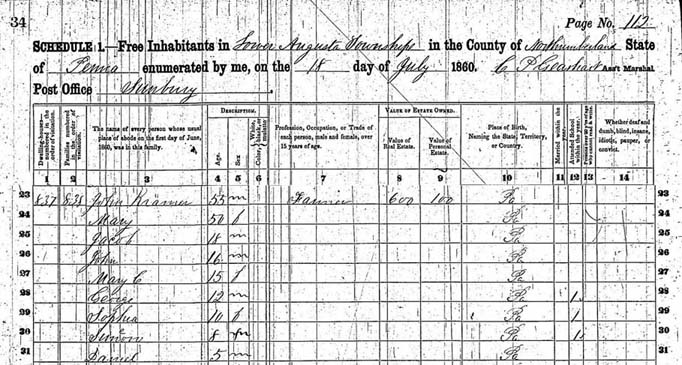 34
Page No. 112
SCHEDULE 1.—Free Inhabitants in Lower Augusta Townships in the County of Northumberland State
of Penna enumerated by me, on the 18 day of July 1860. C P Gearhart Ass't Marshal
Post Office Sunbury.
DESCRIPTION. VALUE OF ESTATE OWNED.
Dwelling-houses—numbered in the order of visitation.
Families numbered in the order of visitation.
The name of every person whose usual place of abode on the first day of June, 1860, was in this family.
Age.
Sex.
Profession, Occupation, or Trade of each person, male and female, over 15 years of age.
Value of Real Estate.
Value of Personal Estate.
Place of Birth, Naming the State, Territory, or Country.
Married within the
Attended School within the
Whether deaf and dumb, blind, insane, idiotic, pauper, or convict.
1 2 3 4 5 6 7 8 9 10 11 12 13 14
23 837 838 John Kramer 55 m Farmer 600 100 Pa 23
24 Mary 50 f Pa 24
25 Jacob 18 m Pa 25
26 John 16 m Pa 26
27 Mary C 15 f Pa 27
28 George 12 m Pa 1 28
29 Sophia 10 f Pa 1 29
30 Simon 8 m Pa 1 30
31 Daniel 5 m Pa 31